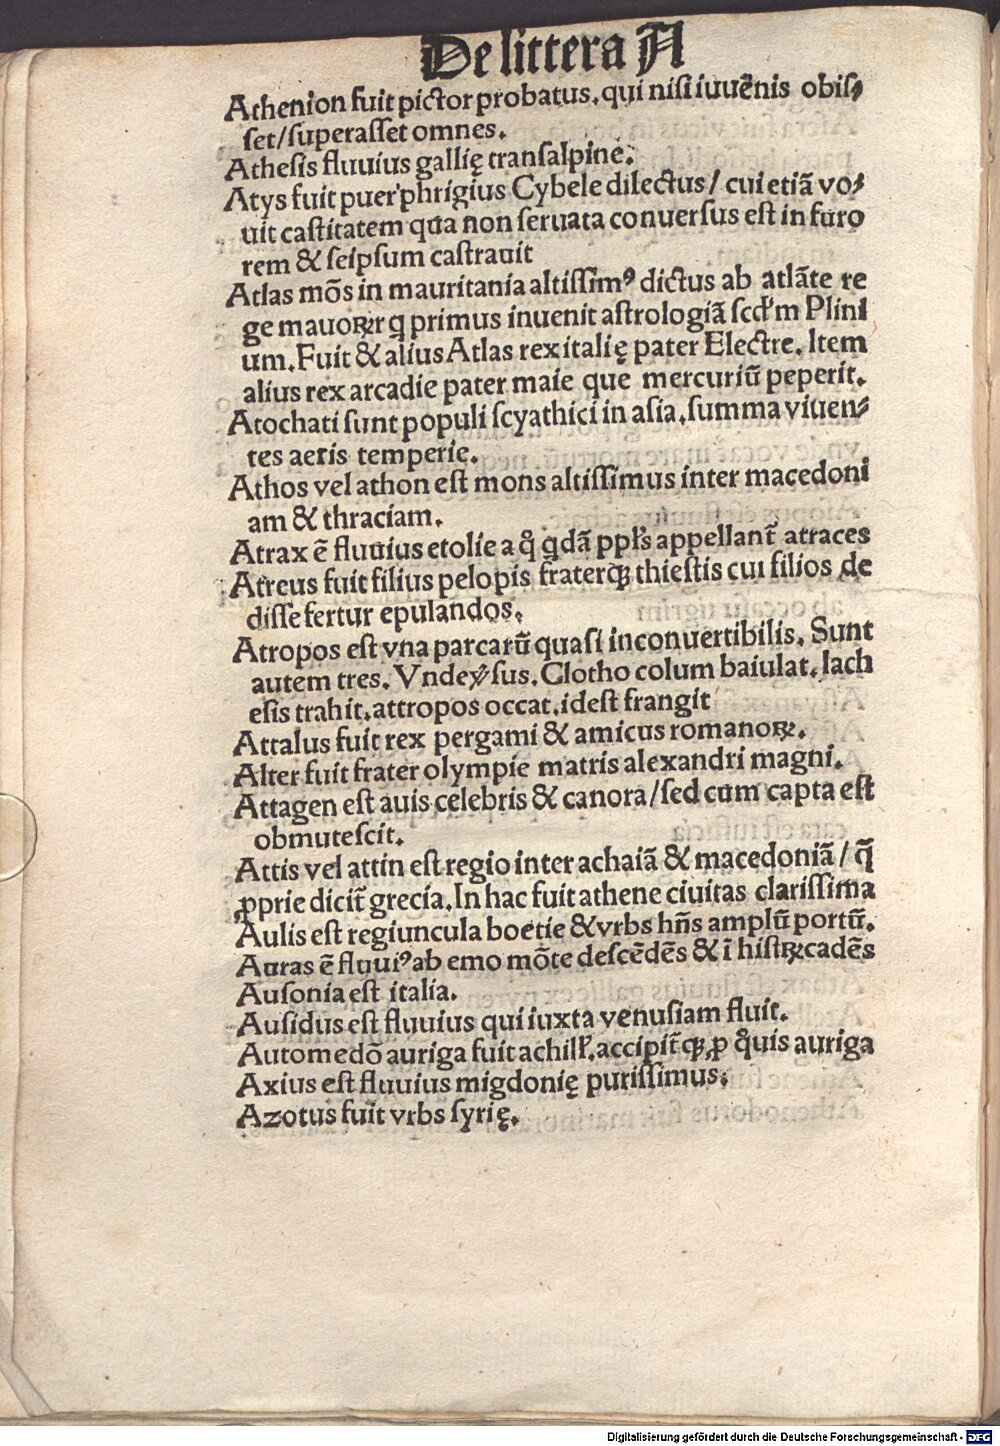 De littera A
Athenion fuit pictor probatus, qui nisi iuuēnis obis⸗
set/superasset omnes.
Athesis fluuius gallię transalpine.
Atys fuit puer phrigius Cybele dilectus/ cui etiā vo⸗
uit castitatem qua non seruata conuersus est in furo
rem & seipsum castrauit
Atlas mōs in mauritania altissimꝰ dictus ab atlāte re
ge mauoꝝ q primus inuenit astrologiā scd'm Plini
um. Fuit & alius Atlas rex italię pater Electre. Item
alius rex arcadie pater maie que mercuriū peperit.
Atochati sunt populi scyathici in asia, summa viuen⸗
tes aeris temperie.
Athos vel athon est mons altissimus inter macedoni
am & thraciam.
Atrax ē fluuius etolie a q̊ qdā ppl's appellant̃ atraces
Atreus fuit filius pelopis fraterqꝫ thiestis cui filios de
disse fertur epulandos.
Atropos est vna parcarū quasi inconuertibilis. Sunt
autem tres. Vnde v̓sus. Clotho colum baiulat. lach
esis trahit, attropos occat, idest frangit
Attalus fuit rex pergami & amicus romanoꝝ.
Alter fuit frater olympie matris alexandri magni.
Attagen est auis celebris & canora/sed cum capta est
obmutescit.
Attis vel attin est regio inter achaiā & macedoniā/ q̄
ꝓprie dicit̃ grecia. In hac fuit athene ciuitas clarissima
Aulis est regiuncula boetie & vrbs hn̄s amplū portū.
Auras ē fluuiꝰ ab emo mōte descēdēs & ī histꝝ cadēs
Ausonia est italia.
Ausidus est fluuius qui iuxta venusiam fluit.
Automedō auriga fuit achill', accipit̃qꝫ ꝓ q̊uis auriga
Axius est fluuius migdonię purissimus.
Azotus fuit vrbs syrię.
Digitalisierung gefördert durch die Deutsche Forschungsgemeinschaft - DFG